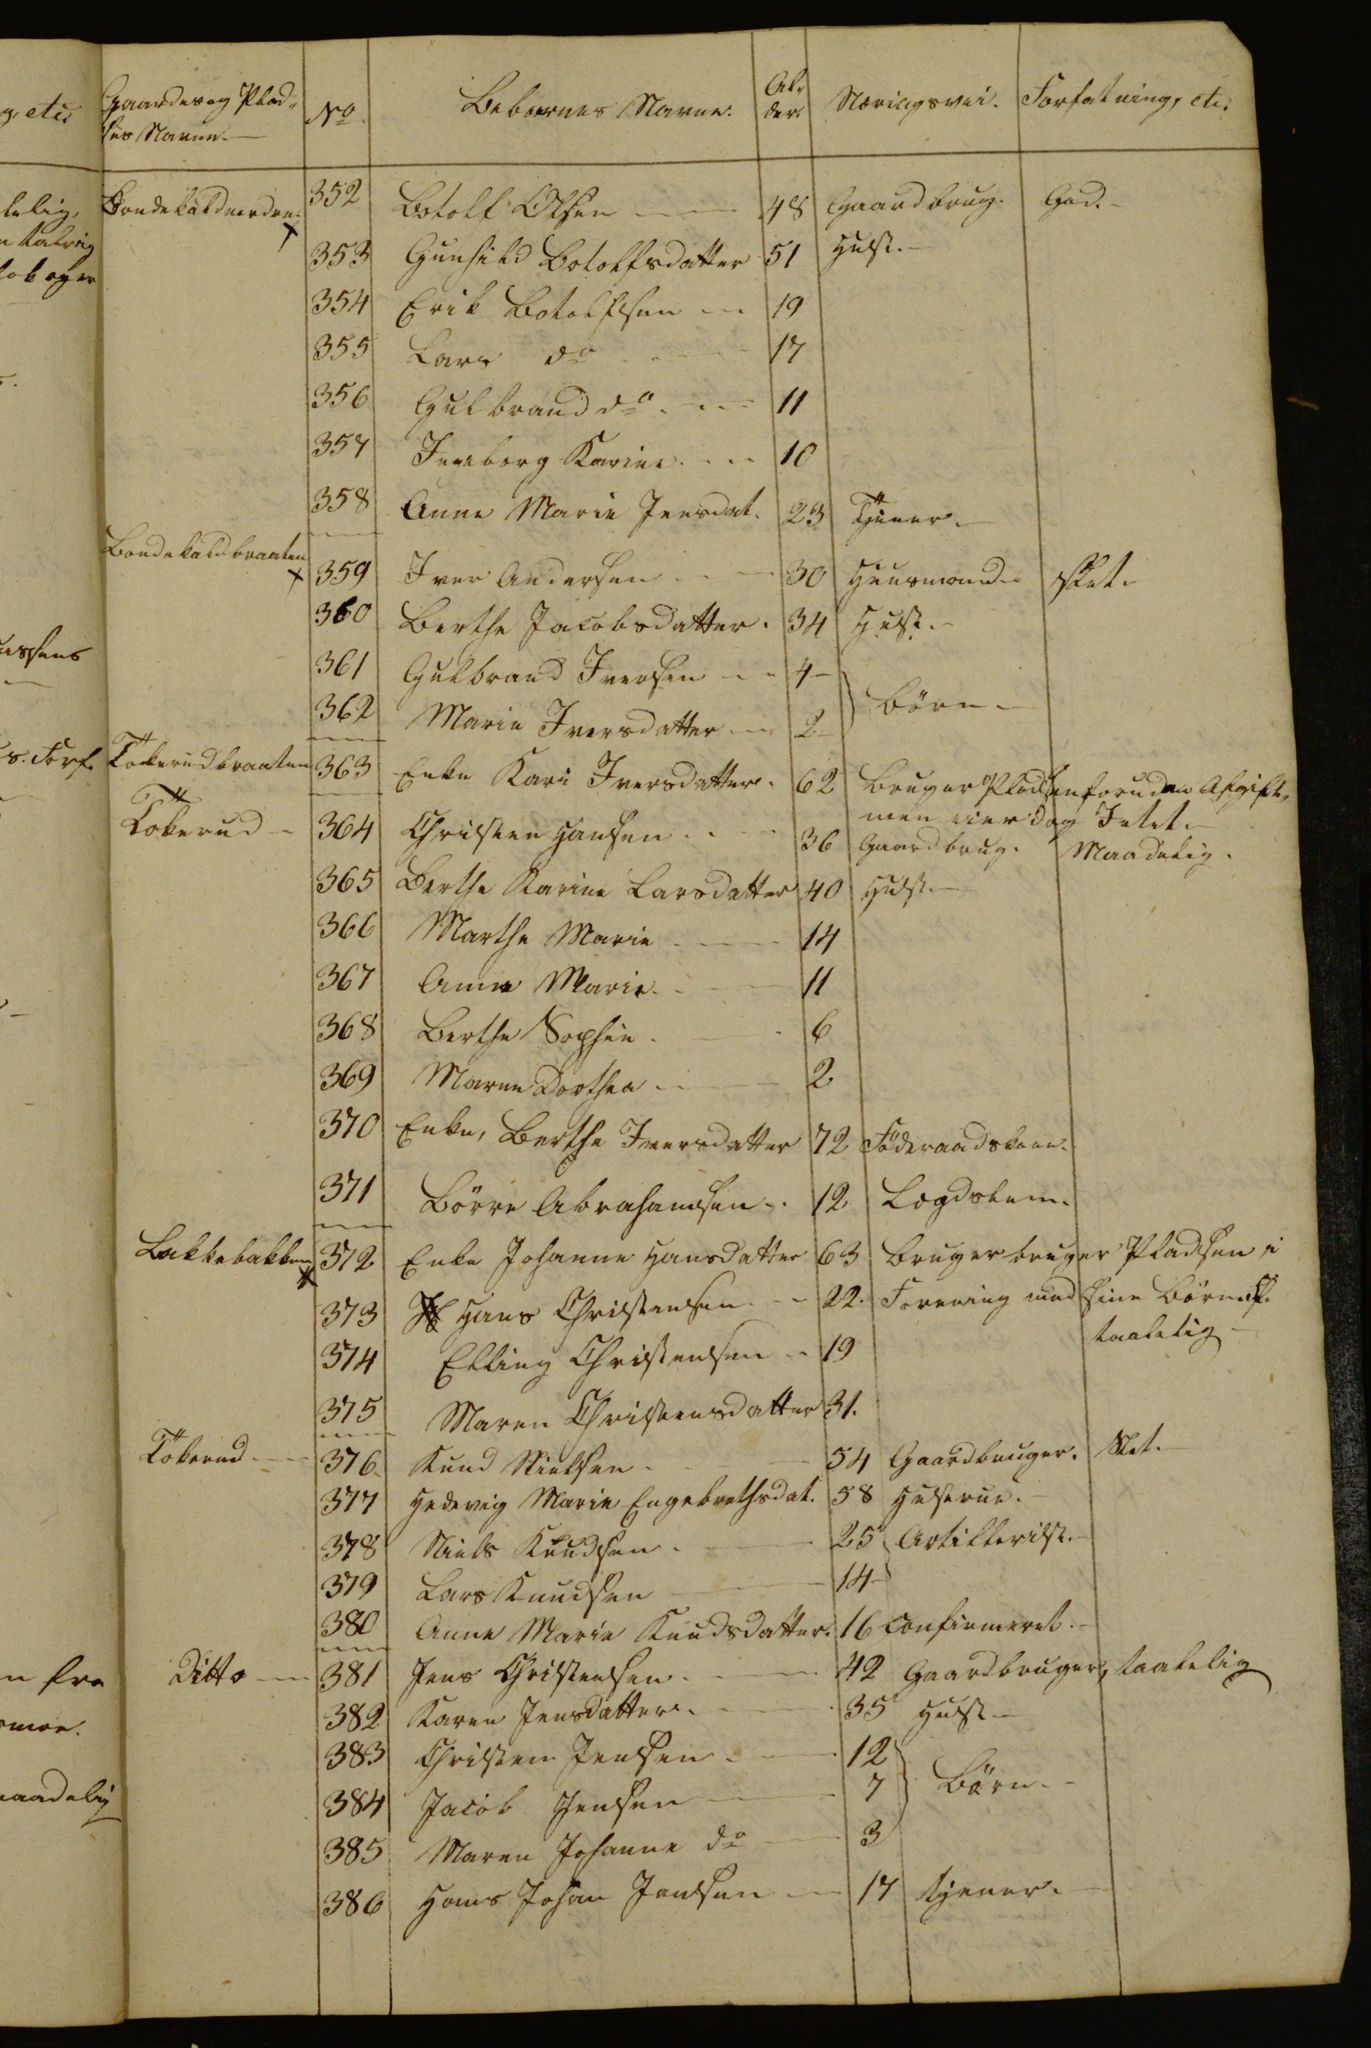 g, etc:
Gaardes og Plad-
ses Navne.
No
Beboernes Navne.
Al-
der.
Næringsvei.
Forfatning, etc:
352 Botolf Olsen 48 Gaardbrug. God.
353 Gunhild Botolfsdatter 51 Hust.
354 Erik Botolfsen 19
355 Lars do 17
356 Gulbrand do 11
357 Ingeborg Karine 10
358 Anne Marie Jensdat. 23 Tjener.
359 Iver Andersen 30 Huusmand Slet.
360 Berthe Jacobsdatter. 34 Hust.
361 Gulbrand Iversen 4
Børn
362 Marie Iversdatter 2
s. Forf.
Tokerudbraaten 363 Enke Kari Iversdatter. 62 Bruger Pladsen foruden Afgift,
men eier dog Intet.
Tokerud 364 Christen Hansen 36 Gaardbrug. Maadelig.
365 Berthe Karine Larsdatter 40 Hust.
366 Marthe Marie 14
367 Anne Marie 11
368 Berthe Sophie 6
369 Maren Dorthea 2
370 Enke, Berthe Iversdatter 72 Föderaadskone.
371 Börre Abrahamsen 12 Lægdslem.
Lakkebakken 372 Enke Johanne Hansdatter 63 bruger bruger Pladsen i
373 Hans Christensen 22. Forening med sine Börn.
taalelig
374 Elling Christensen 19
375 Maren Christensdatter 31.
Tokerud 376 Knud Nielsen 54 Gaardbruger. Slet.
377 Hedevig Marie Engebrethsdat. 58 Hustrue.
378 Niels Knudsen 25 Artillerist.
379 Lars Knudsen 14
380 Anne Marie Knudsdatter. 16 Confirmeret.
Ditto 381 Jens Christensen 42 Gaardbruger, taalelig
382 Karen Jensdatter. 35 Hust
383 Christen Jensen 12
384 Jacob Jensen 7 Börn
385 Maren Johanne do 3
386 Hans Johan Jensen 17 tjener.